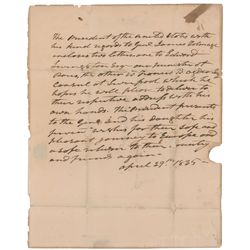 The President of the United States with
his kind regards to Genl. James Talmage
incloses two letters one to Edward
Livingston Esqr our minister at
Paris, the other to Francis B. Ogden Esq
Consul at Liverpool which he
hopes he will please to deliver to
their respective address with his
own hands. The President presents
to the Genl. and his daughter his
wishes for their safe and
pleasant passage to Europe and
a safe return to their country
and friends again.
April 29th 1835